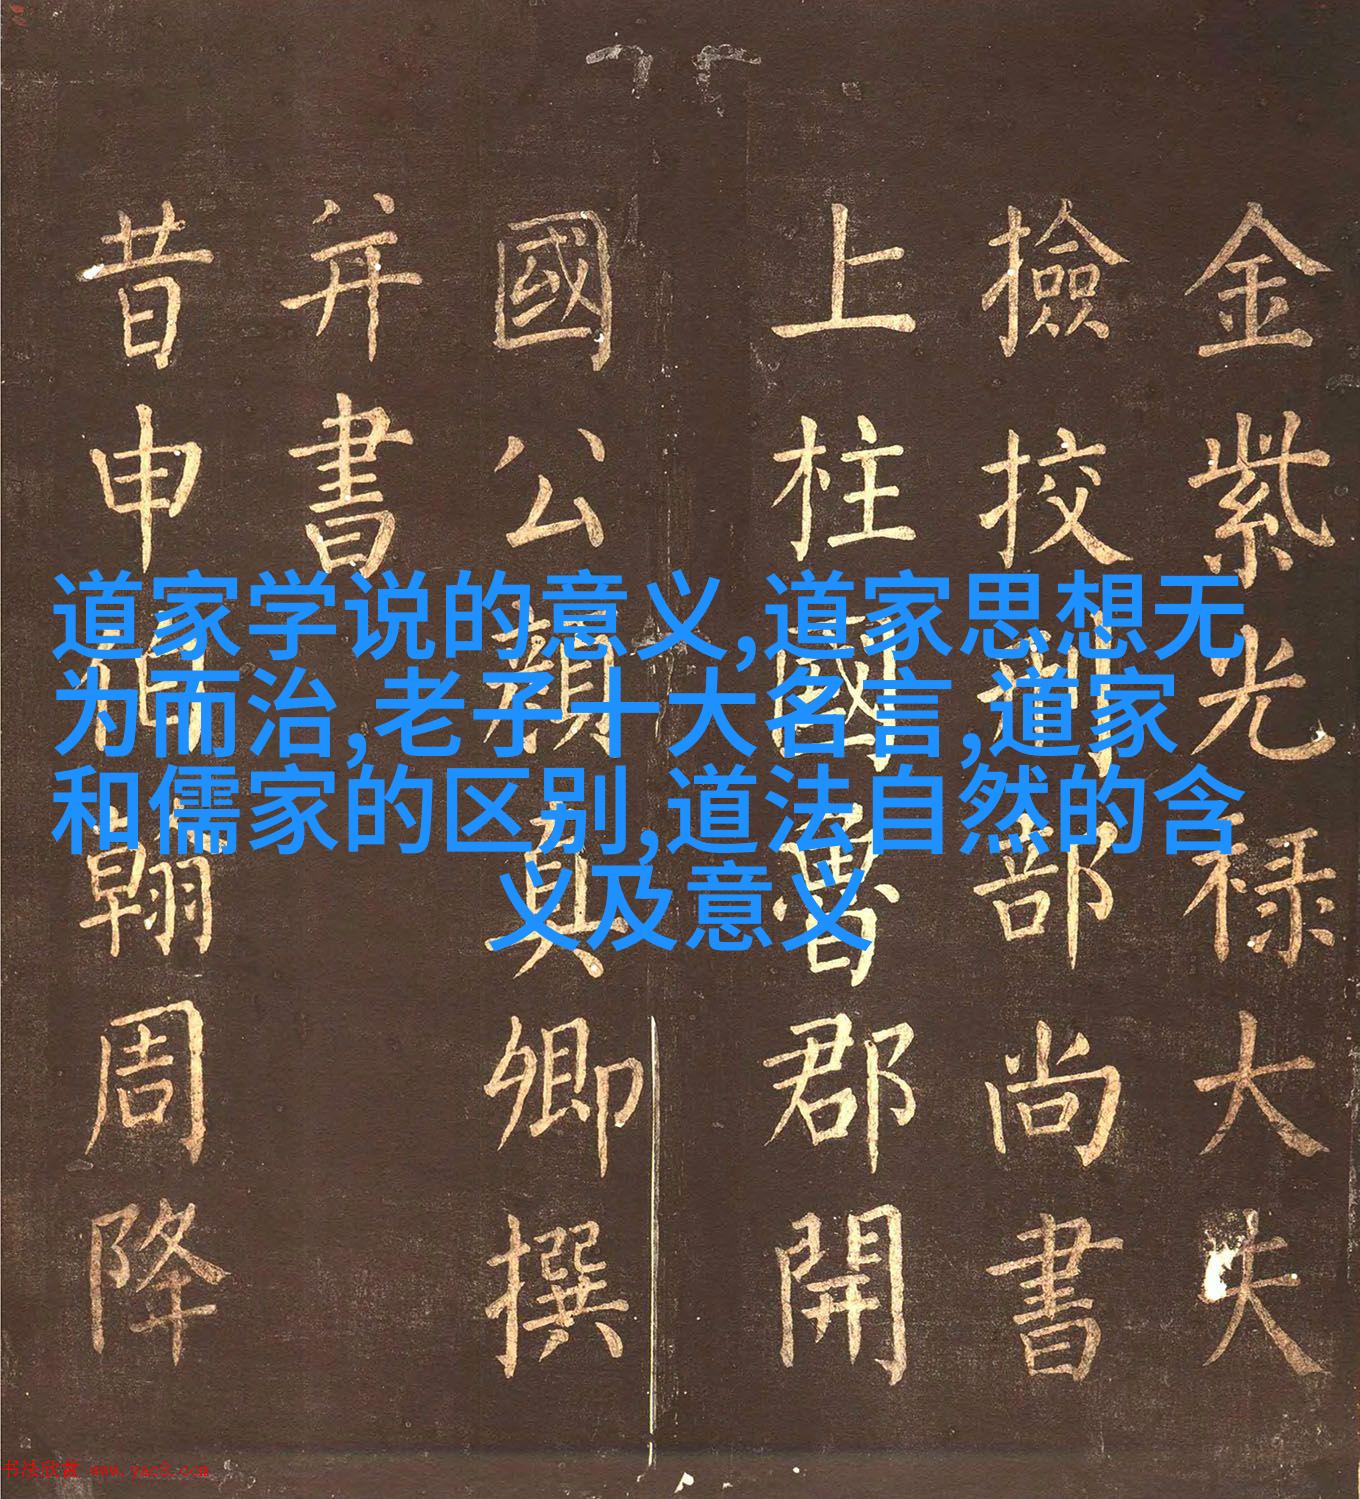 金紫光禄大夫
撿挍刑部尚書
上柱國魯郡開
國公顔真卿撰
并書
昔申伯翰周降
道家学说的意义,道家思想无
为而治,老子十大名言,道家
和儒家的区别,道法自然的含
义及意义
书法欣赏 www.yac8.com